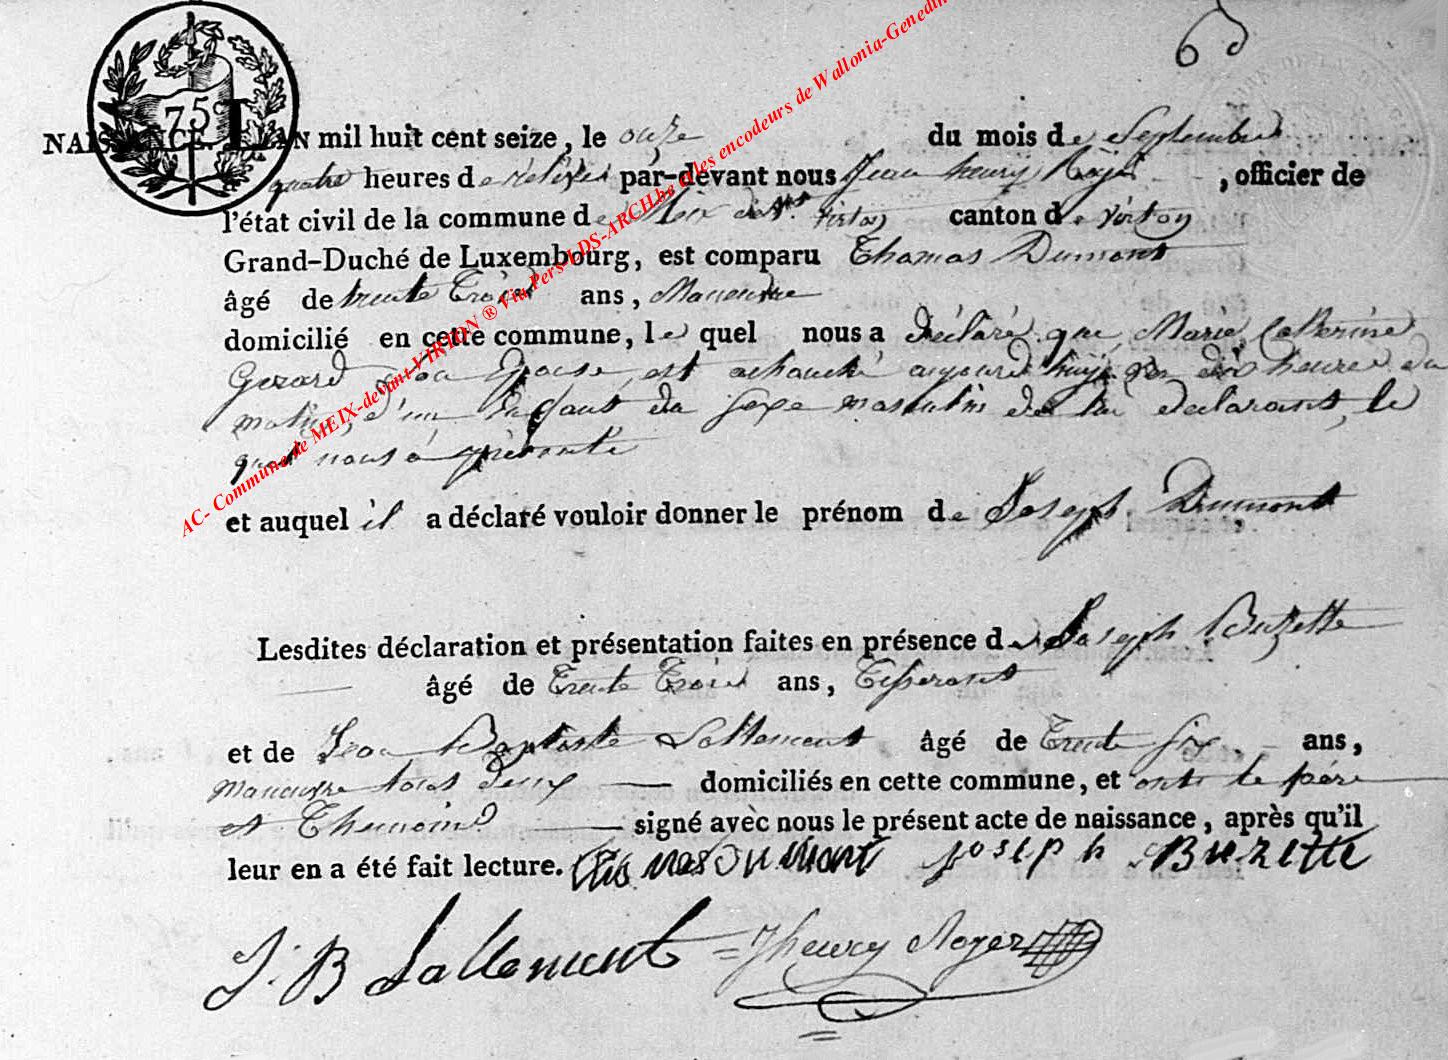 63
75 C
NAISSANCE. L'AN mil huit cent seize, le onze du mois de Septembre
quatre heures de relevés par-devant nous Jean henry Roger, officier de
l'état civil de la commune de Meix dvt. virton canton de virton
Grand-Duché de Luxembourg, est comparu Thomas Dumont
âgé de trente Trois ans, Maneuvre
domicilié en cette commune, le quel nous a déclaré que Marie Catherine
Gerard son Epouse, est achouché aujourd'huÿ dix heures du
matin, d'un Enfant du sexe masculin de lui declarant, le
quel nous a présenté
et auquel il a déclaré vouloir donner le prénom de Joseph Dumont
Lesdites déclaration et présentation faites en présence de Joseph Buzette
âgé de Trente Trois ans, Tisserant
et de Jean Baptiste Lallement âgé de Trente six ans,
maneuvre tous deux domiciliés en cette commune, et ont le père
et Themoins signé avec nous le présent acte de naissance, après qu'il
leur en a été fait lecture. Dumont joseph Buzette
J. B Lallement Jhenry Roger
AC- Commune de MEIX-devant-VIRTON ® Via Pers-LDS-ARCH.be et les encodeurs de Wallonia-Genedin